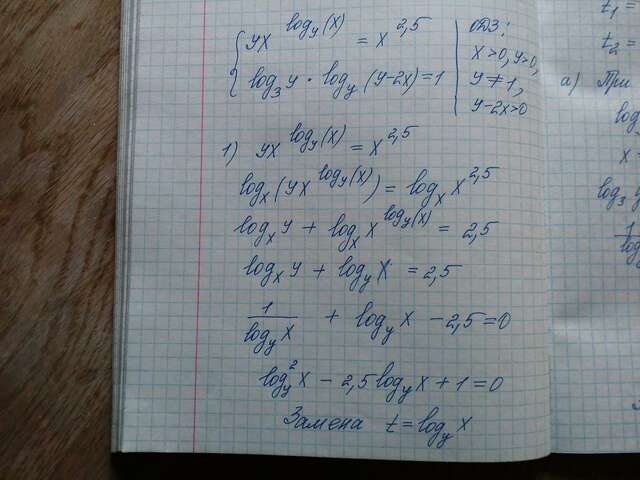 yx^{log_y(x)} = x^{2,5}
log_3 y · log_y (y-2x) = 1
ОДЗ:
x>0, y>0,
y≠1,
y-2x>0
1) yx^{log_y(x)} = x^{2,5}
log_x (yx^{log_y(x)}) = log_x x^{2,5}
log_x y + log_x x^{log_y(x)} = 2,5
log_x y + log_y x = 2,5
1/log_y x + log_y x - 2,5 = 0
log_y^2 x - 2,5 log_y x + 1 = 0
Замена t = log_y x
t_1 =
t_2 =
а) При
log
x
log_3 y
1/log